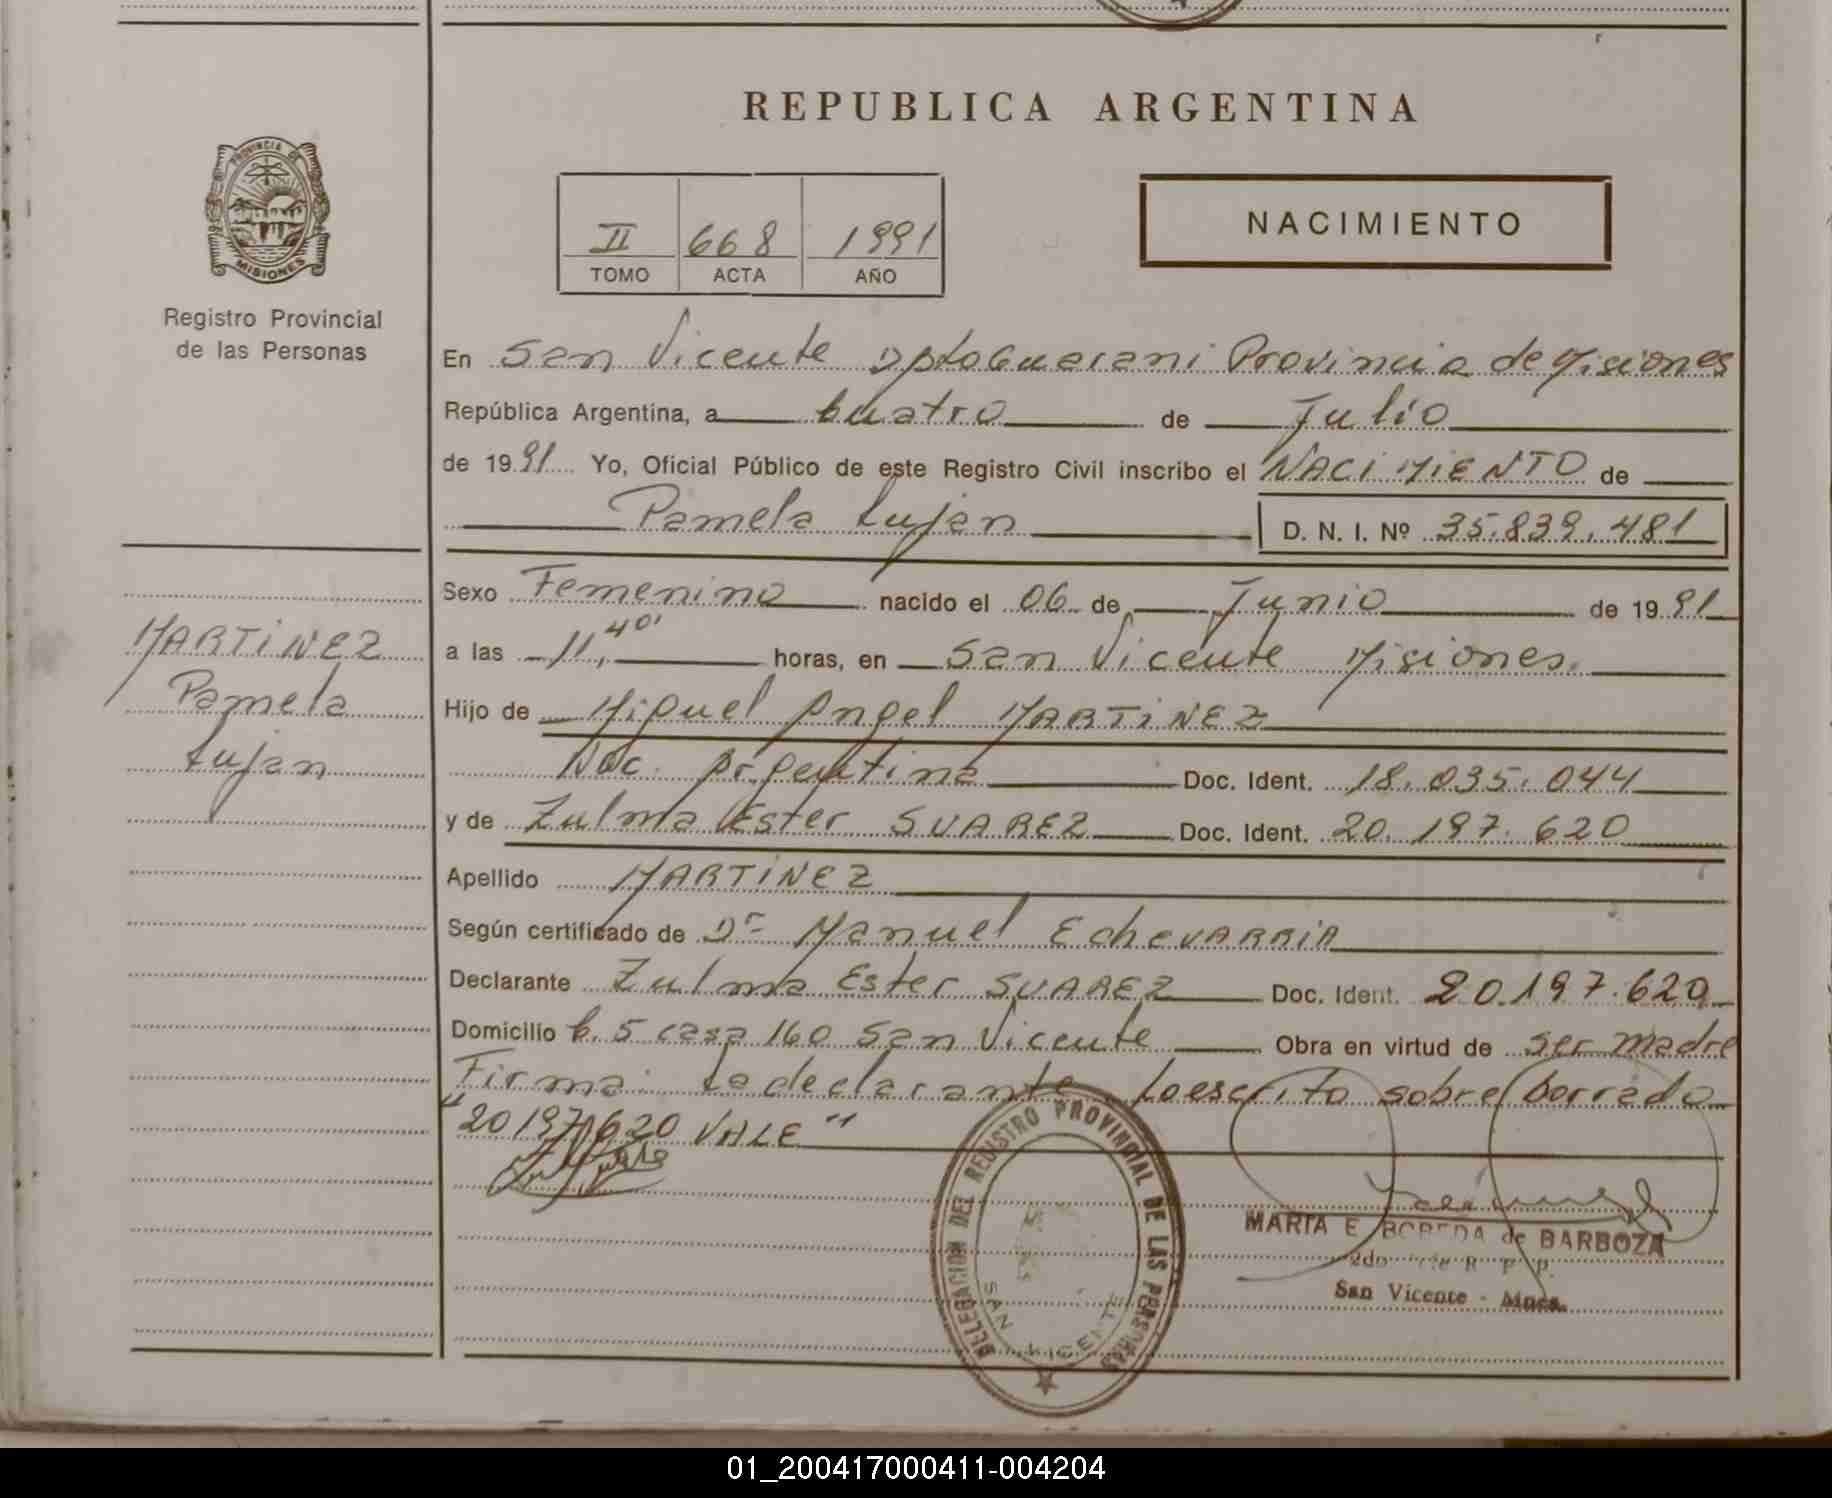 REPUBLICA ARGENTINA
PROVINCIA DE
MISIONES
Registro Provincial
de las Personas
II 668 1991
TOMO ACTA AÑO
NACIMIENTO
En San Vicente Dpto Guarani Provincia de Misiones
República Argentina, a cuatro de Julio
de 1991 Yo, Oficial Público de este Registro Civil inscribo el NACIMIENTO de
Pamela Lujan D. N. I. Nº 35.839.481
Sexo Femenino nacido el 06 de Junio de 1991
a las 11,40' horas, en San Vicente Misiones.
Hijo de Miguel Angel MARTINEZ
Nac. Argentina Doc. Ident. 18.035.044
y de Zulma Ester SUAREZ Doc. Ident. 20.197.620
Apellido MARTINEZ
Según certificado de Dr Manuel EchevARRIA
Declarante Zulma Ester SUAREZ Doc. Ident. 20.197.620
Domicilio b. 5 casa 160 San Vicente Obra en virtud de ser madre
Firma: La declarante. Lo escrito sobre borrado
"20197620 VALE"
MARTINEZ
Pamela
Lujan
DELEGACION DEL REGISTRO PROVINCIAL DE LAS PERSONAS
SAN VICENTE
MARIA E. BOBEDA de BARBOZA
San Vicente - Mnes.
01_200417000411-004204